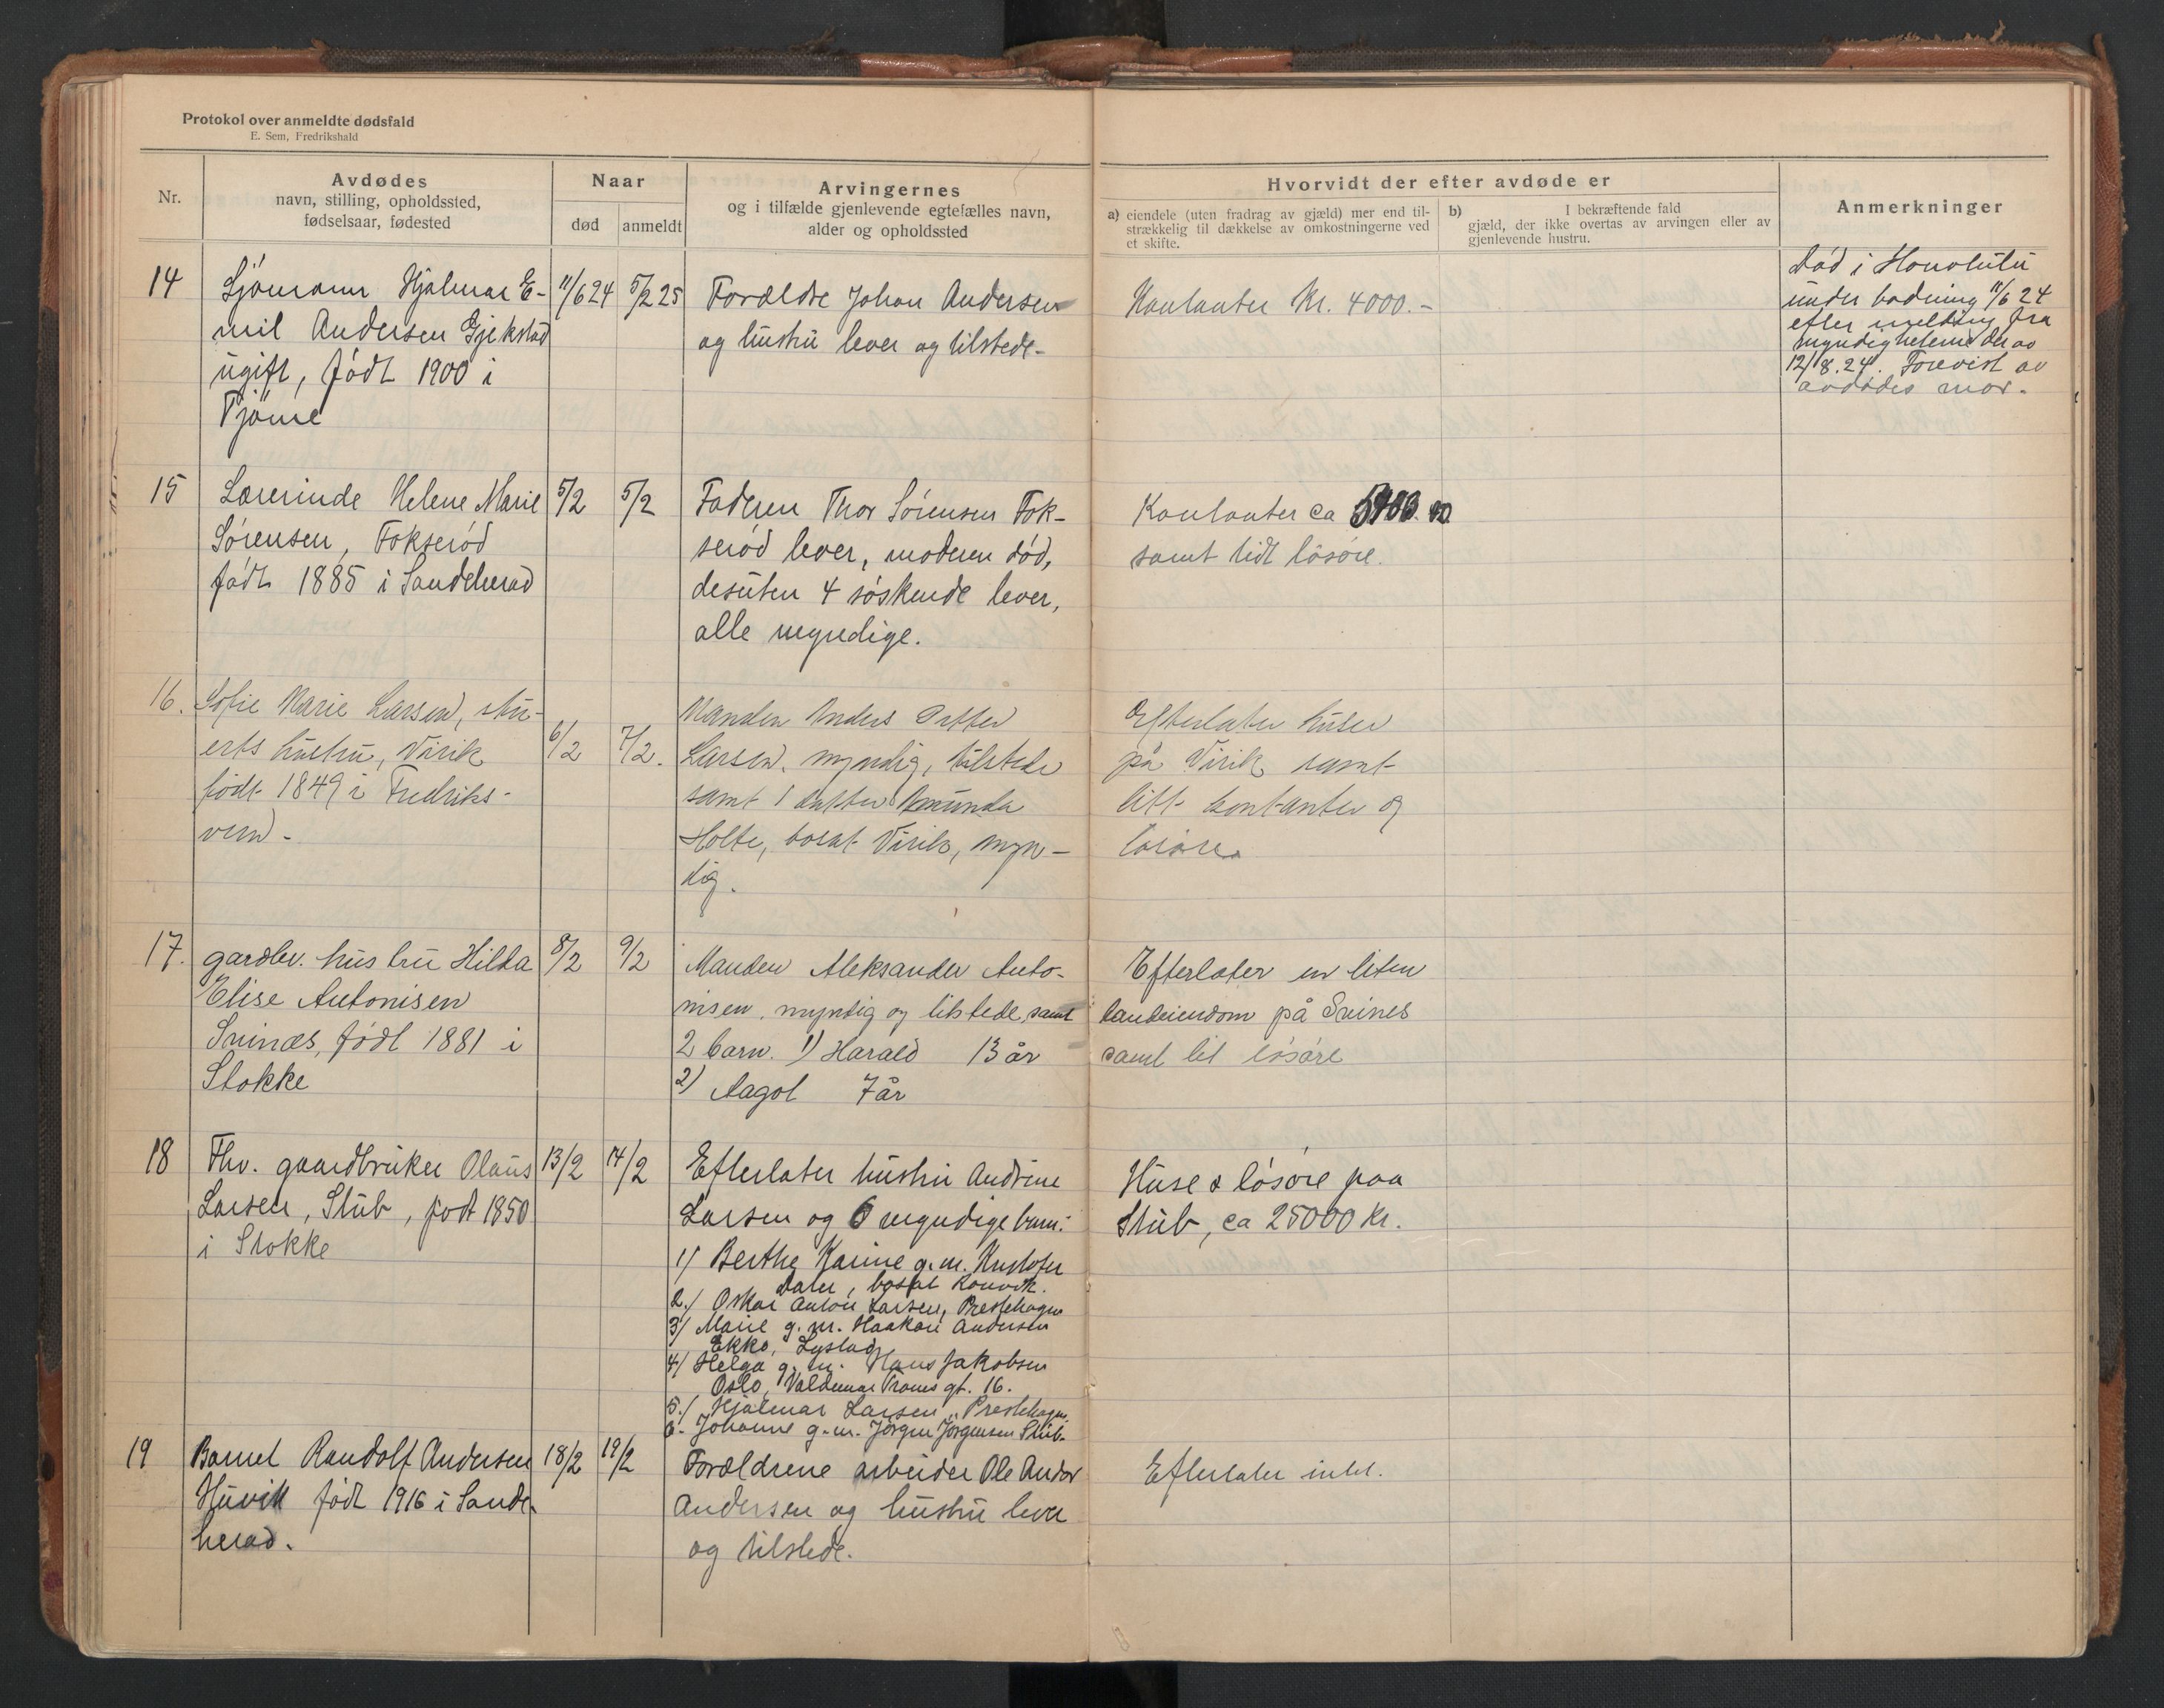 Protokol over anmeldte dødsfald
E. Sem, Fredrikshald
Nr.
Avdødes
navn, stilling, opholdssted,
fødselsaar, fødested
Naar
død
anmeldt
Arvingernes
og i tilfælde gjenlevende egtefælles navn,
alder og opholdssted
Hvorvidt der efter avdøde er
a) eiendele (uten fradrag av gjæld) mer end til-
strækkelig til dækkelse av omkostningerne ved
et skifte.
b) I bekræftende fald
gjæld, der ikke overtas av arvingen eller av
gjenlevende hustru.
Anmerkninger
14
Sjömann Hjalmar E-
mil Andersen Gjekstad
ugift, födt 1900 i
Tjöme
11/6 24
5/2 25
Forældre Johan Andersen
og hustru lever og tilstede.
Kontanter Kr. 4000.-
Död i Honolulu
under badning 11/6 24
efter melding fra
myndigheterne der av
12/8.24. Forevist av
avdödes mor.
15
Lærerinde Helene Marie
Sørensen, Fokserød
født 1885 i Sandeherad
5/2
5/2
Faderen Thor Sørensen Fok-
serød lever, moderen död,
desuten 4 söskende lever,
alle myndige.
Kontanter ca
samt lidt lösöre.
16.
Sofie Marie Larsen, stu-
erts hustru, Virik
födt 1849 i Fredriks-
vern.
6/2
7/2.
Manden Anders Petter
Larsen, myndig, tilstede
samt 1 datter Amunda
Holte, bosat Virik, myn-
dig.
Efterlater huser
på Virik samt
litt kontanter og
lösöre.
17.
gardbr. hustru Hilda
Elise Antonisen
Svinæs, født 1881 i
Stokke
8/2
9/2
Manden Aleksander Anto-
nisen, myndig og tilstede samt
2 barn. 1) Harald 13 år
2) Aagot 7 år
Efterlater en liten
landeiendom på Svines
samt lit lösöre
18
Fhv. gaardbruker Olaus
Larsen, Stub, født 1850
i Stokke
13/2
14/2
Efterlater hustru Andrine
Larsen og 6 myndige barn:
1/ Berthe Karine g.m. Kristofer
Dater, bosat Kamvik.
2./ Oskar Anton Larsen, Prestehagen
3/ Marie g.m. Haakon Andersen
Ekko, Lystad
4/ Helga g.m. Hans Jakobsen
Oslo, Valdemar Tranes gt. 16.
5./ Hjalmar Larsen, Prestehagen.
6. Johanne g.m. Jörgen Jörgensen Stub.
Huse & lösöre paa
Stub, ca 25000 Kr.
19
Barnet Randolf Andersen
Huvik födt 1916 i Sande-
herad.
18/2
19/2
Forældrene arbeider Ole Andor
Andersen og hustru lever
og tilstede.
Efterlater intet.